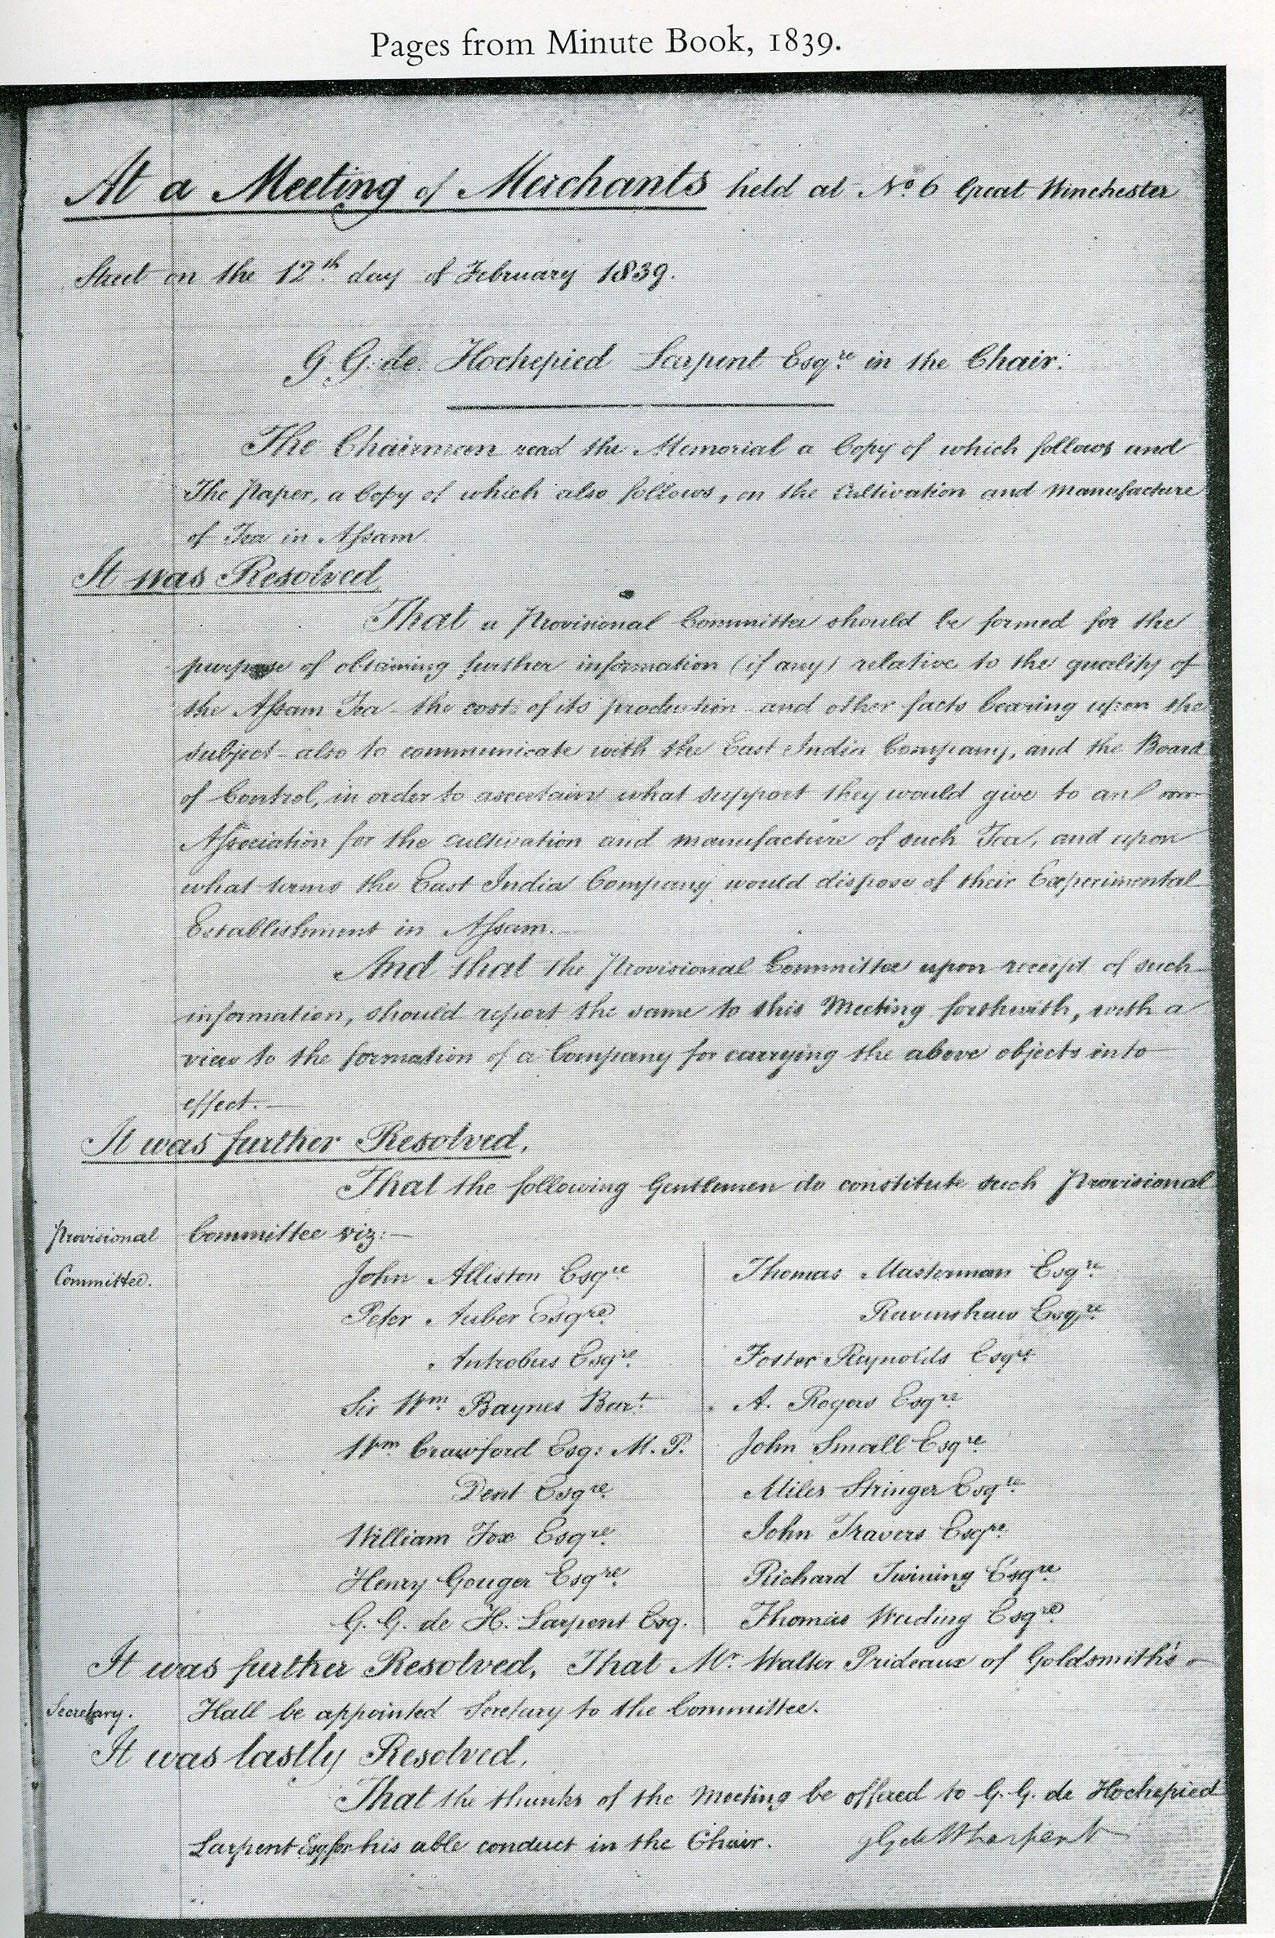 Pages from Minute Book, 1839.
At a Meeting of Merchants held at No. 6 Great Winchester
Street on the 12th day of February 1839.
G. G. de Hochepied Larpent Esqre in the Chair.
The Chairman read the Memorial a Copy of which follows and
The Paper, a Copy of which also follows, on the Cultivation and Manufacture
of Tea in Assam.
It was Resolved
That a Provisional Committee should be formed for the
purpose of obtaining further information (if any) relative to the quality of
the Assam Tea – the costs of its production – and other facts bearing upon the
subject – also to communicate with the East India Company, and the Board
of Control, in order to ascertain what support they would give to an
Association for the cultivation and manufacture of such Tea, and upon
what terms the East India Company would dispose of their Experimental
Establishment in Assam. –
And that the Provisional Committee upon receipt of such
information, should report the same to this Meeting forthwith, with a
view to the formation of a Company for carrying the above objects into
effect. –
It was further Resolved,
That the following Gentlemen do constitute such Provisional
Provisional Committee viz: –
Committee.
John Alliston Esqre Thomas Masterman Esqre
Peter Auber Esqre Ravenshaw Esqre
Antrobus Esqre Foster Reynolds Esqre
Sir Wm. Baynes Bart. A. Rogers Esqre
Wm. Crawford Esq: M.P. John Small Esqre
Dent Esqre Miles Stringer Esqre
William Fox Esqre John Travers Esqre
Henry Gouger Esqre Richard Twining Esqre
G. G. de H. Larpent Esq. Thomas Weeding Esqre
It was further Resolved, That Mr. Walter Prideaux of Goldsmith's
Secretary. Hall be appointed Secretary to the Committee.
It was lastly Resolved,
That the thanks of the Meeting be offered to G. G. de Hochepied
Larpent Esq for his able conduct in the Chair. G G de H Larpent